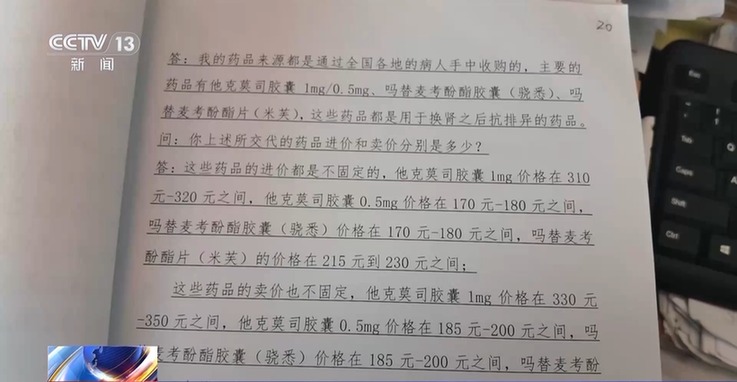 CCTV 13
新闻
20
答：我的药品来源都是通过全国各地的病人手中收购的，主要的
药品有他克莫司胶囊 1mg/0.5mg、吗替麦考酚酯胶囊（骁悉）、吗
替麦考酚酯片（米芙），这些药品都是用于换肾之后抗排异的药品。
问：你上述所交代的药品进价和卖价分别是多少？
答：这些药品的进价都是不固定的，他克莫司胶囊 1mg 价格在 310
元-320 元之间，他克莫司胶囊 0.5mg 价格在 170 元-180 元之间，
吗替麦考酚酯胶囊（骁悉）价格在 170 元-180 元之间，吗替麦考
酚酯片（米芙）的价格在 215 元到 230 元之间；
这些药品的卖价也不固定，他克莫司胶囊 1mg 价格在 330 元
-350 元之间，他克莫司胶囊 0.5mg 价格在 185 元-200 元之间，吗
麦考酚酯胶囊（骁悉）价格在 185 元-200 元之间，吗替麦考酚
Tab
Caps
Shift
Ctrl